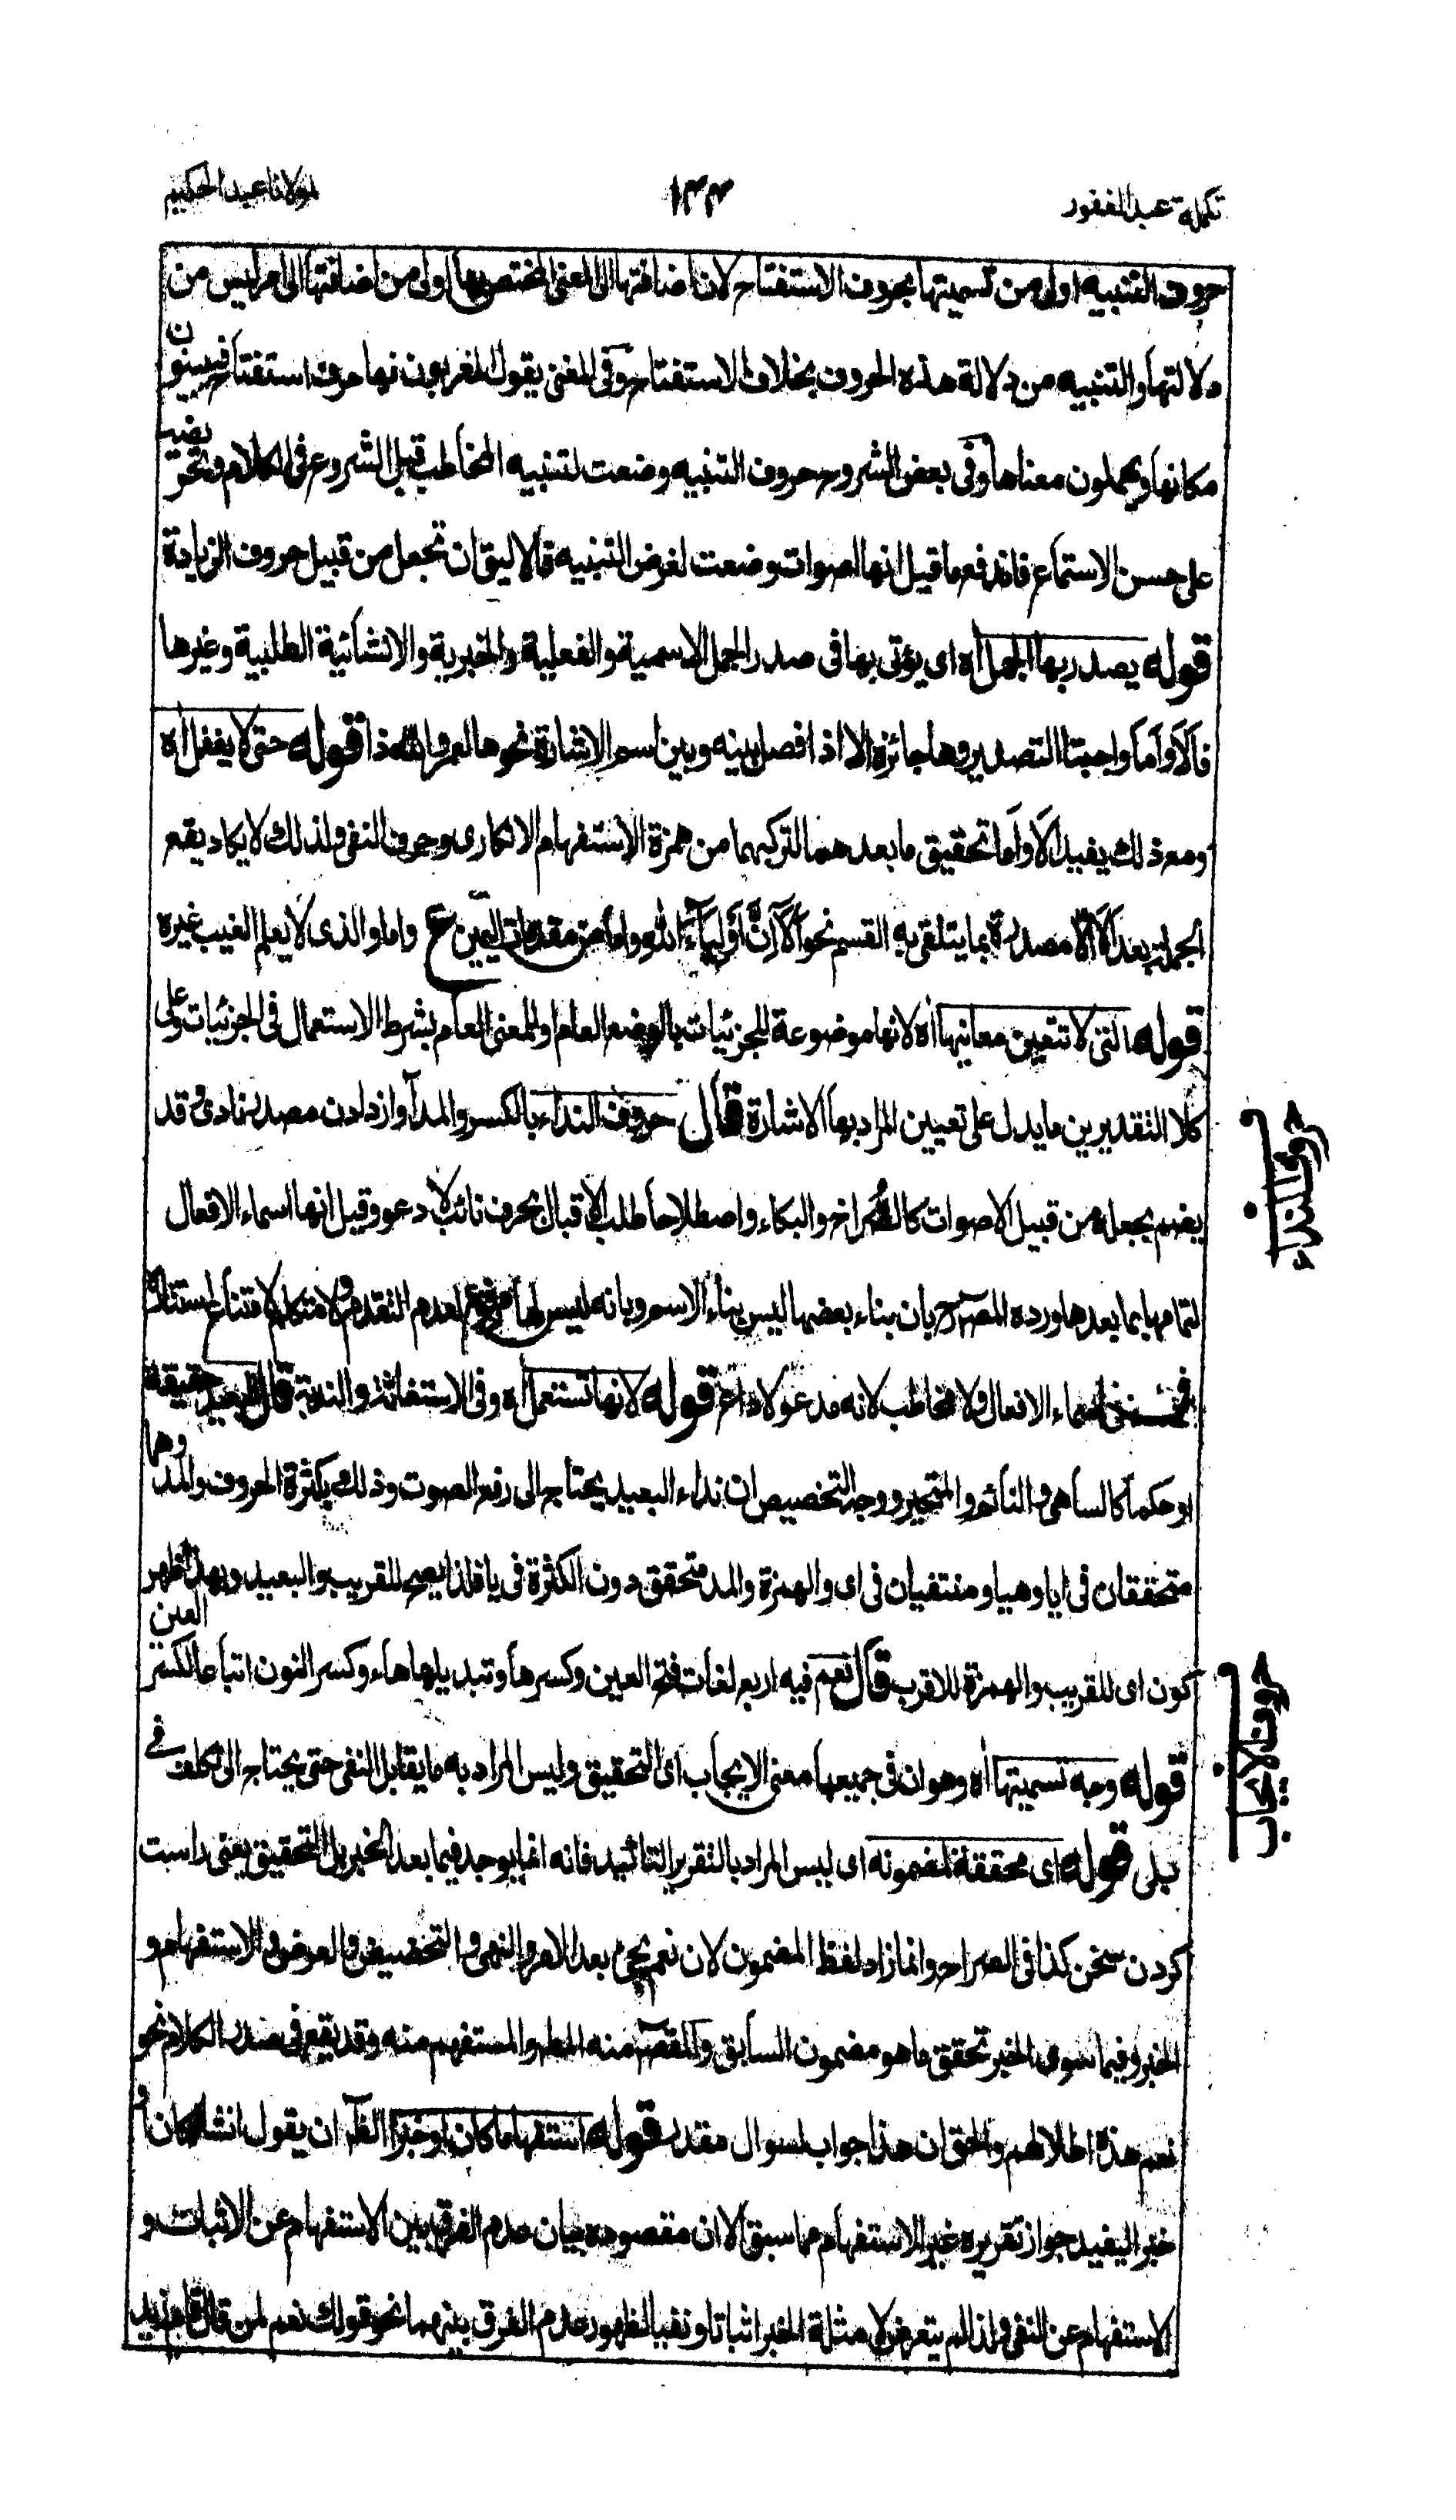 تكمله عبد الغفور
١٣٣
مولانا عبد الحكيم
حروف التنبيه اولى من تسميتها بحروف الاستفتاح لان اضافتها الى المعنى المختص بها اولى من اضافتها الى امر ليس من
دلالتها والتنبيه من دلالة هذه الحروف بخلاف الاستفتاح وفى المغنى يقول المغربون فيها حرف استفتاح فيبينون
مكانها ويهملون معناها وفى بعض الشروح حروف التنبيه وضعت لتنبيه المخاطب قبل الشروع فى الكلام وتحريضه
على حسن الاستماع فاندفع ما قيل انها اصوات وضعت لغرض التنبيه فالاليق ان تجعل من قبيل حروف الزيادة
قوله يصدر بها الجمل اه اى يؤتى بها فى صدر الجمل الاسمية والفعلية والخبرية والانشائية الطلبية وغيرها
فالا واما واجبتا التصدير وها جائزة الا اذا فصل بينه وبين اسم الاشارة نحو ها لعمر الله ذا قوله حتى لا يغفل اه
ومع ذلك يفيد الا واما تحقيق ما بعدهما لتركبهما من همزة الاستفهام الانكارى وحرف النفى ولذلك لا يكاد يقع
الجملة بعد الا الا مصدرة بما يتلقى به القسم نحو الا ان اولياء الله واما من مقدمات اليمين ع واما والذى لا يعلم الغيب غيره
قوله التى لا تتعين معانيها اه لانها موضوعة للجزئيات بالوضع العام او للمعنى العام بشرط الاستعمال فى الجزئيات وعلى
كلا التقديرين ما يدل على تعيين المراد بها الاشارة قال حروف النداء بالكسر والمد آواز دادن مصدر نادى وقد
يضم بجعله من قبيل الاصوات كالصراخ والبكاء واصطلاحا طلب الاقبال بحرف نائب لادعو وقيل انها اسماء الافعال
لتمامها بما بعدها ورده المصرح بان بناء بعضها ليس بناء الاسم وبانه ليس لها مرفوع لعدم التقدم ولا متكلم لامتناع استتاره
فى اسماء الافعال ولا مخاطب لانه مدعو لا داع قوله لانها تستعمل اه وفى الاستغاثة والندبة قال للبعيد حقيقة
او حكما كالساهى والنائم والمتحير ووجه التخصيص ان نداء البعيد يحتاج الى رفع الصوت وذلك بكثرة الحروف والمد وهما
متحققان فى ايا وهيا ومنتفيان فى اى والهمزة والمد متحقق دون الكثرة فى يا فلذا يصح للقريب والبعيد وبهذا ظهر
كون اى للقريب والهمزة للاقرب قال نعم فيه اربع لغات فتح العين وكسرها وتبديلها هاء وكسر النون اتباعا لكسر العين
قوله وجه تسميتها اه وهو ان فى جميعها معنى الايجاب اى التحقيق وليس المراد به ما يقابل النفى حتى يحتاج الى تكلف فى
بلى قوله اى محققة لمضمونه اى ليس المراد بالتقرير التائيد فانه انما يوجد فيما بعد الخبر بل التحقيق يعنى راست
كردن سخن كذا فى الصراح وانما زاد لفظ المضمون لان نعم يجئ بعد الامر والنهى والتحضيض والعرض والاستفهام و
الخبر وفيما سوى الخبر تحقق ما هو مضمون السابق والمقصود منه المطلوب والمستفهم منه وقد يقع فى صدر الكلام نحو
نعم هذه اطلالهم والحق ان هذا جواب لسوال مقدر قوله استفهاما كان او خبرا الظ ان يقول انشاء كان او
خبرا ليفيد جواز تقريره غير الاستفهام مما سبق الا ان مقصوده بيان عدم الفرق بين الاستفهام عن الاثبات و
الاستفهام عن النفى ولذا لم يتعرض لامثلة الخبر اثباتا ونفيا لظهور عدم الفرق بينهما نحو قولك نعم لمن قال قام زيد
حروف النداء
حروف الايجاب